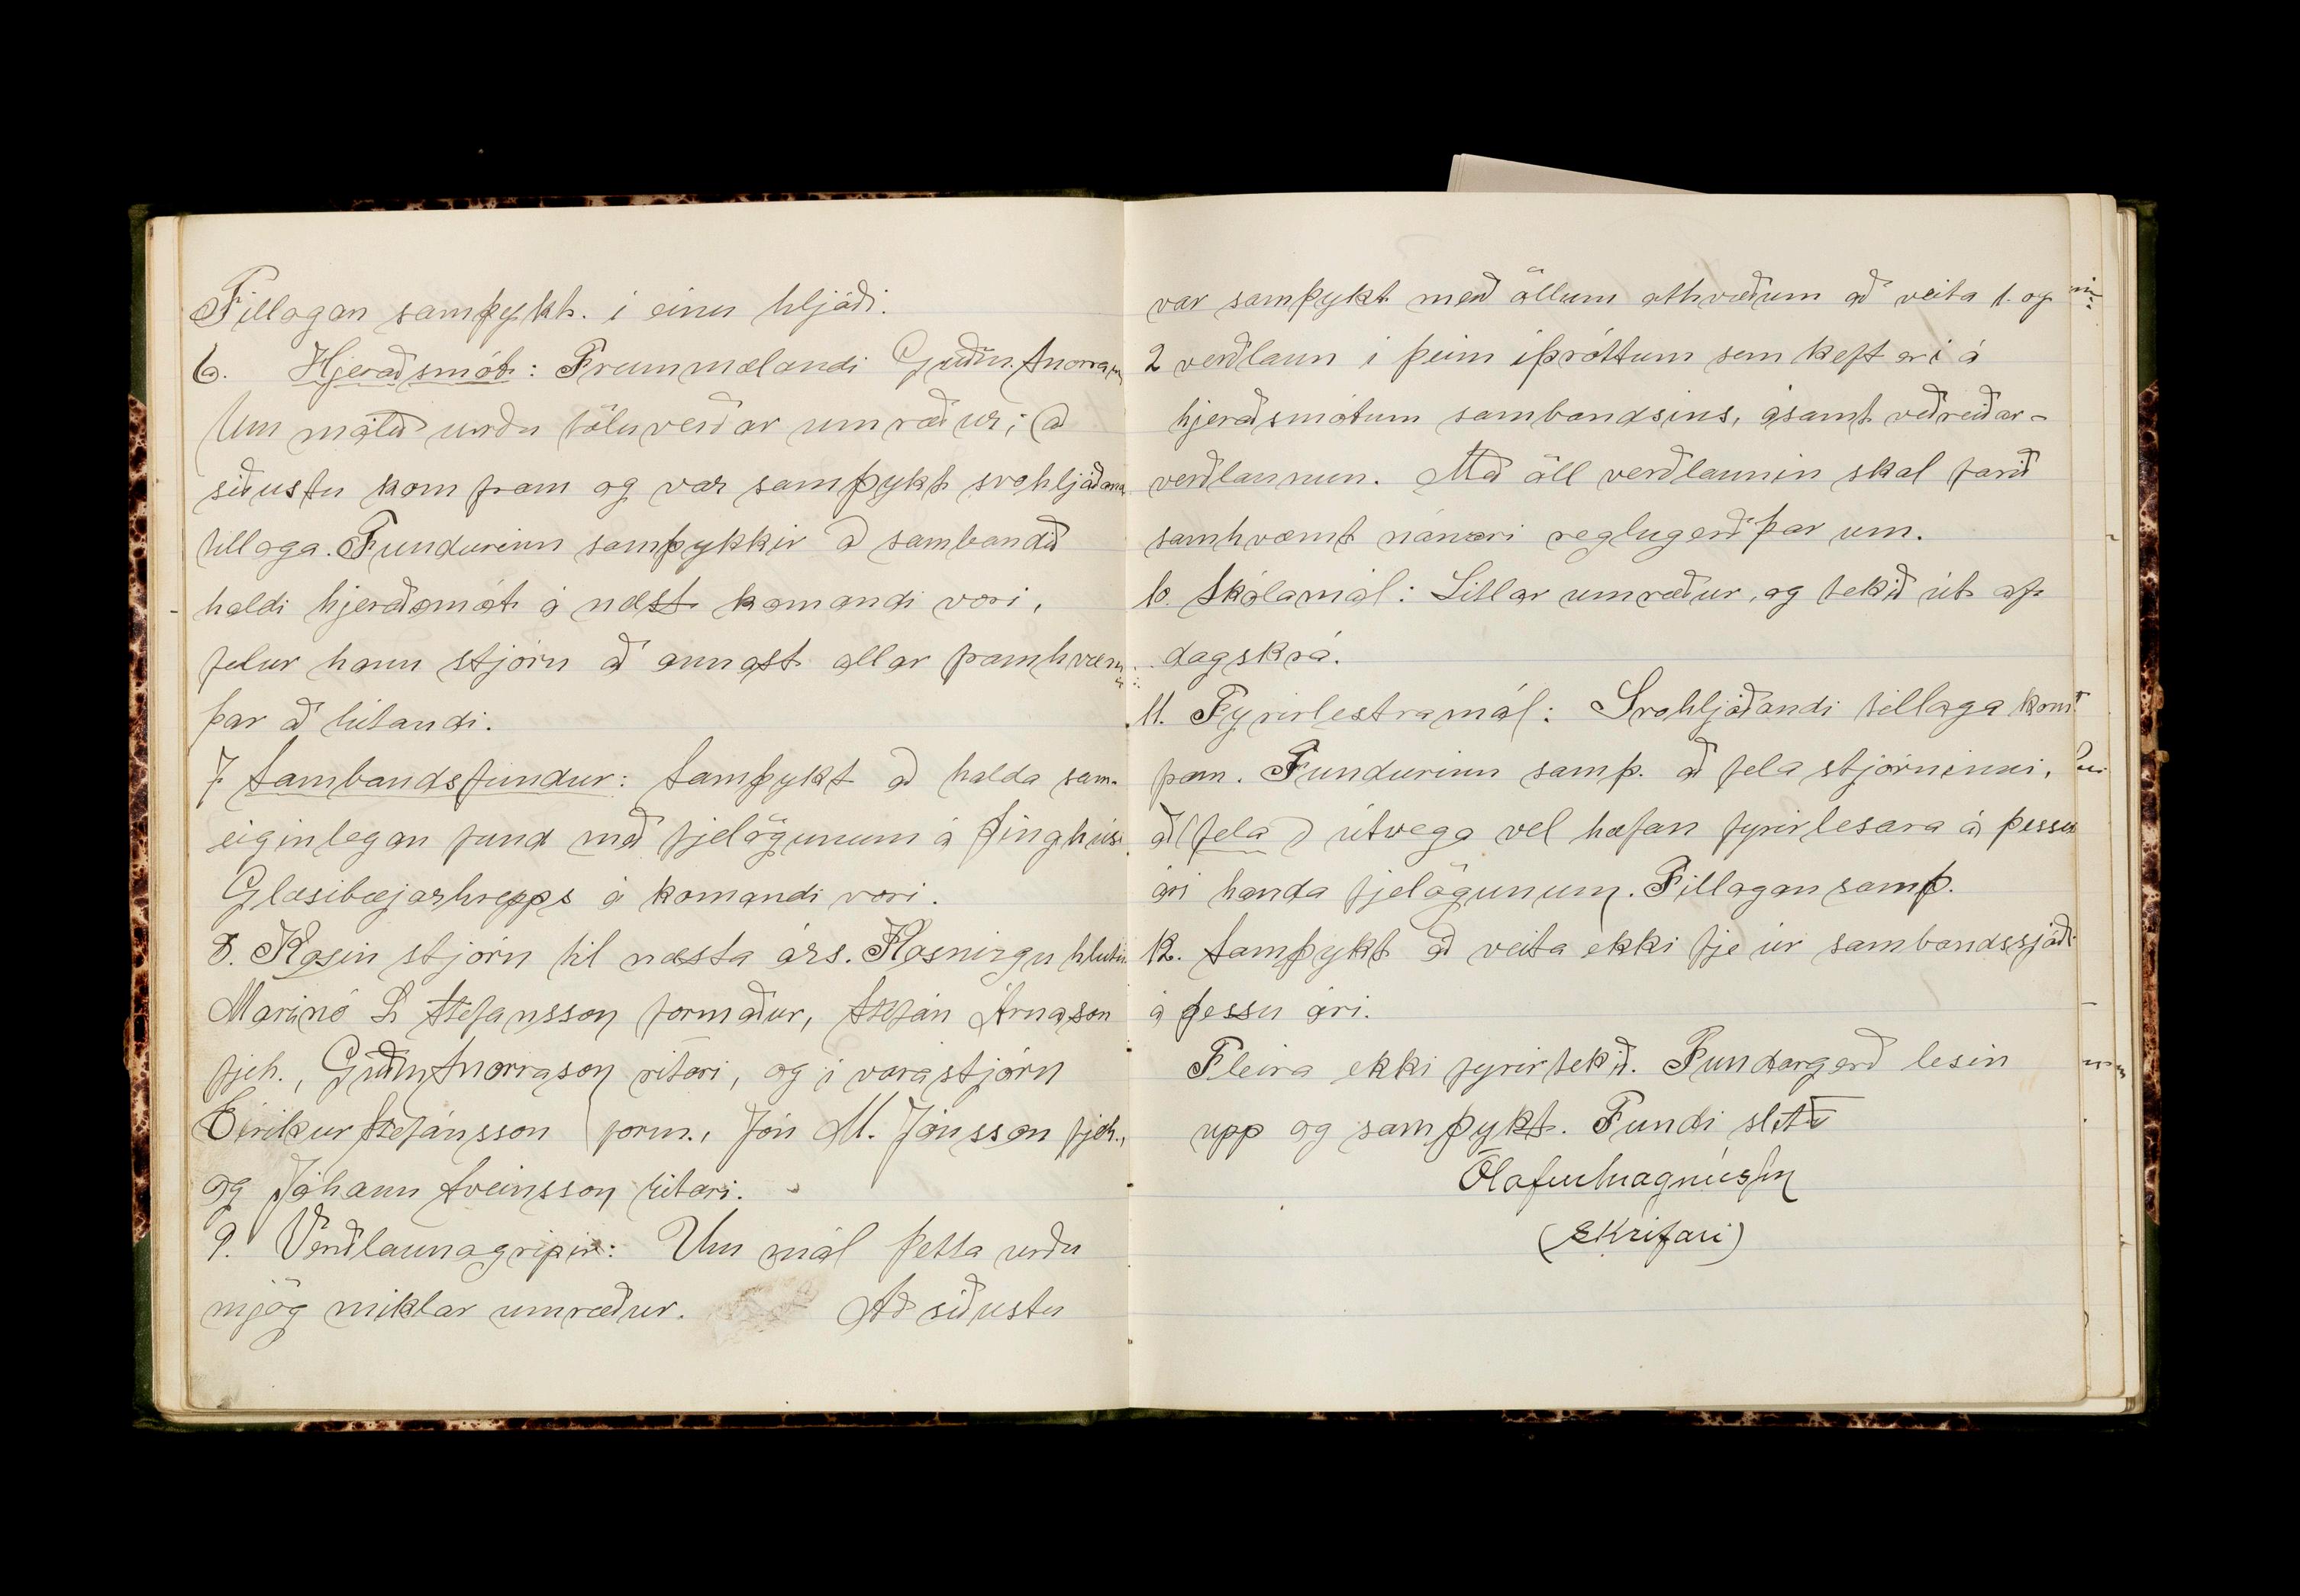 Tillagan samþykt. í einu hljóði.
6. Hjeraðsmót: Frummælandi Guðm. Snorrason
Um málið urðu töluverðar umræður; að
síðustu kom fram og var samþykt svohljóðandi
tillaga. Fundurinn samþykkir að sambandið
haldi hjeraðsmót á næst komandi vori,
felur hann stjórn að annast allar framkvæmdir
þar að lútandi.
7. Sambandsfundur: Samþykt að halda sam-
eiginlegan fund með fjelögunum á þinghúsi
Glæsibæjarhrepps á komandi vori.
8. Kosin stjórn til næsta árs. Kosningu hlutu
Marinó L Stefansson formaður, Stefán Árnason
fjeh., Guðm Snorrason ritari, og í varastjórn
Eiríkur Stefánsson form., Jón M. Jónsson fjeh.,
og Jóhann Sveinsson ritari.
9. Verðlaunagripir: Um mál þetta urðu
mjög miklar umræður. Að síðustu
var samþykt með öllum athvæðum að veita 1. og
2 verðlaun í þeim íþróttum sem kept er í á
hjeraðsmótum sambandsins, ásamt veðreiðar-
verðlaunum. Með öll verðlaunin skal farið
samkvæmt nánari reglugerð þar um.
10. Skólamál: Litlar umræður, og tekið út af
dagskrá.
11. Fyrirlestramál: Svohljóðandi tillaga kom
fram. Fundurinn samþ. að fela stjórninni,
að (fela) útvega vel hæfan fyrirlesara á þessu
ári handa fjelögunum. Tillagan samþ.
12. Samþykt að veita ekki fje úr sambandssjóði
á þessu ári.
Fleira ekki fyrirtekið. Fundargerð lesin
upp og samþykt. Fundi slitið
Ólafur Magnússon
(Skrifari)